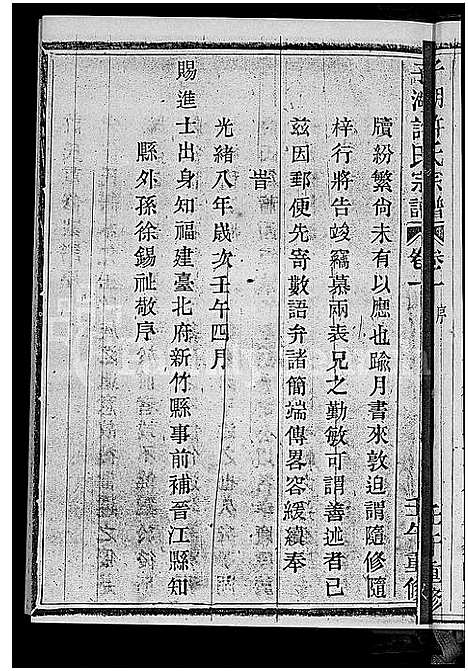 牘紛繁尙未有以應也踰月書來敦迫謂隨修隨
梓行將告竣竊慕兩表兄之勤敏可謂善述者已
茲因郵便先寄數語弁諸簡端傳畧容緩續奉
旹
光緒八年歲次壬午四月
賜進士出身知福建臺北府新竹縣事前補晉江縣知
縣外孫徐錫祉敬序
平湖許氏宗譜 卷一 序 壬午重修